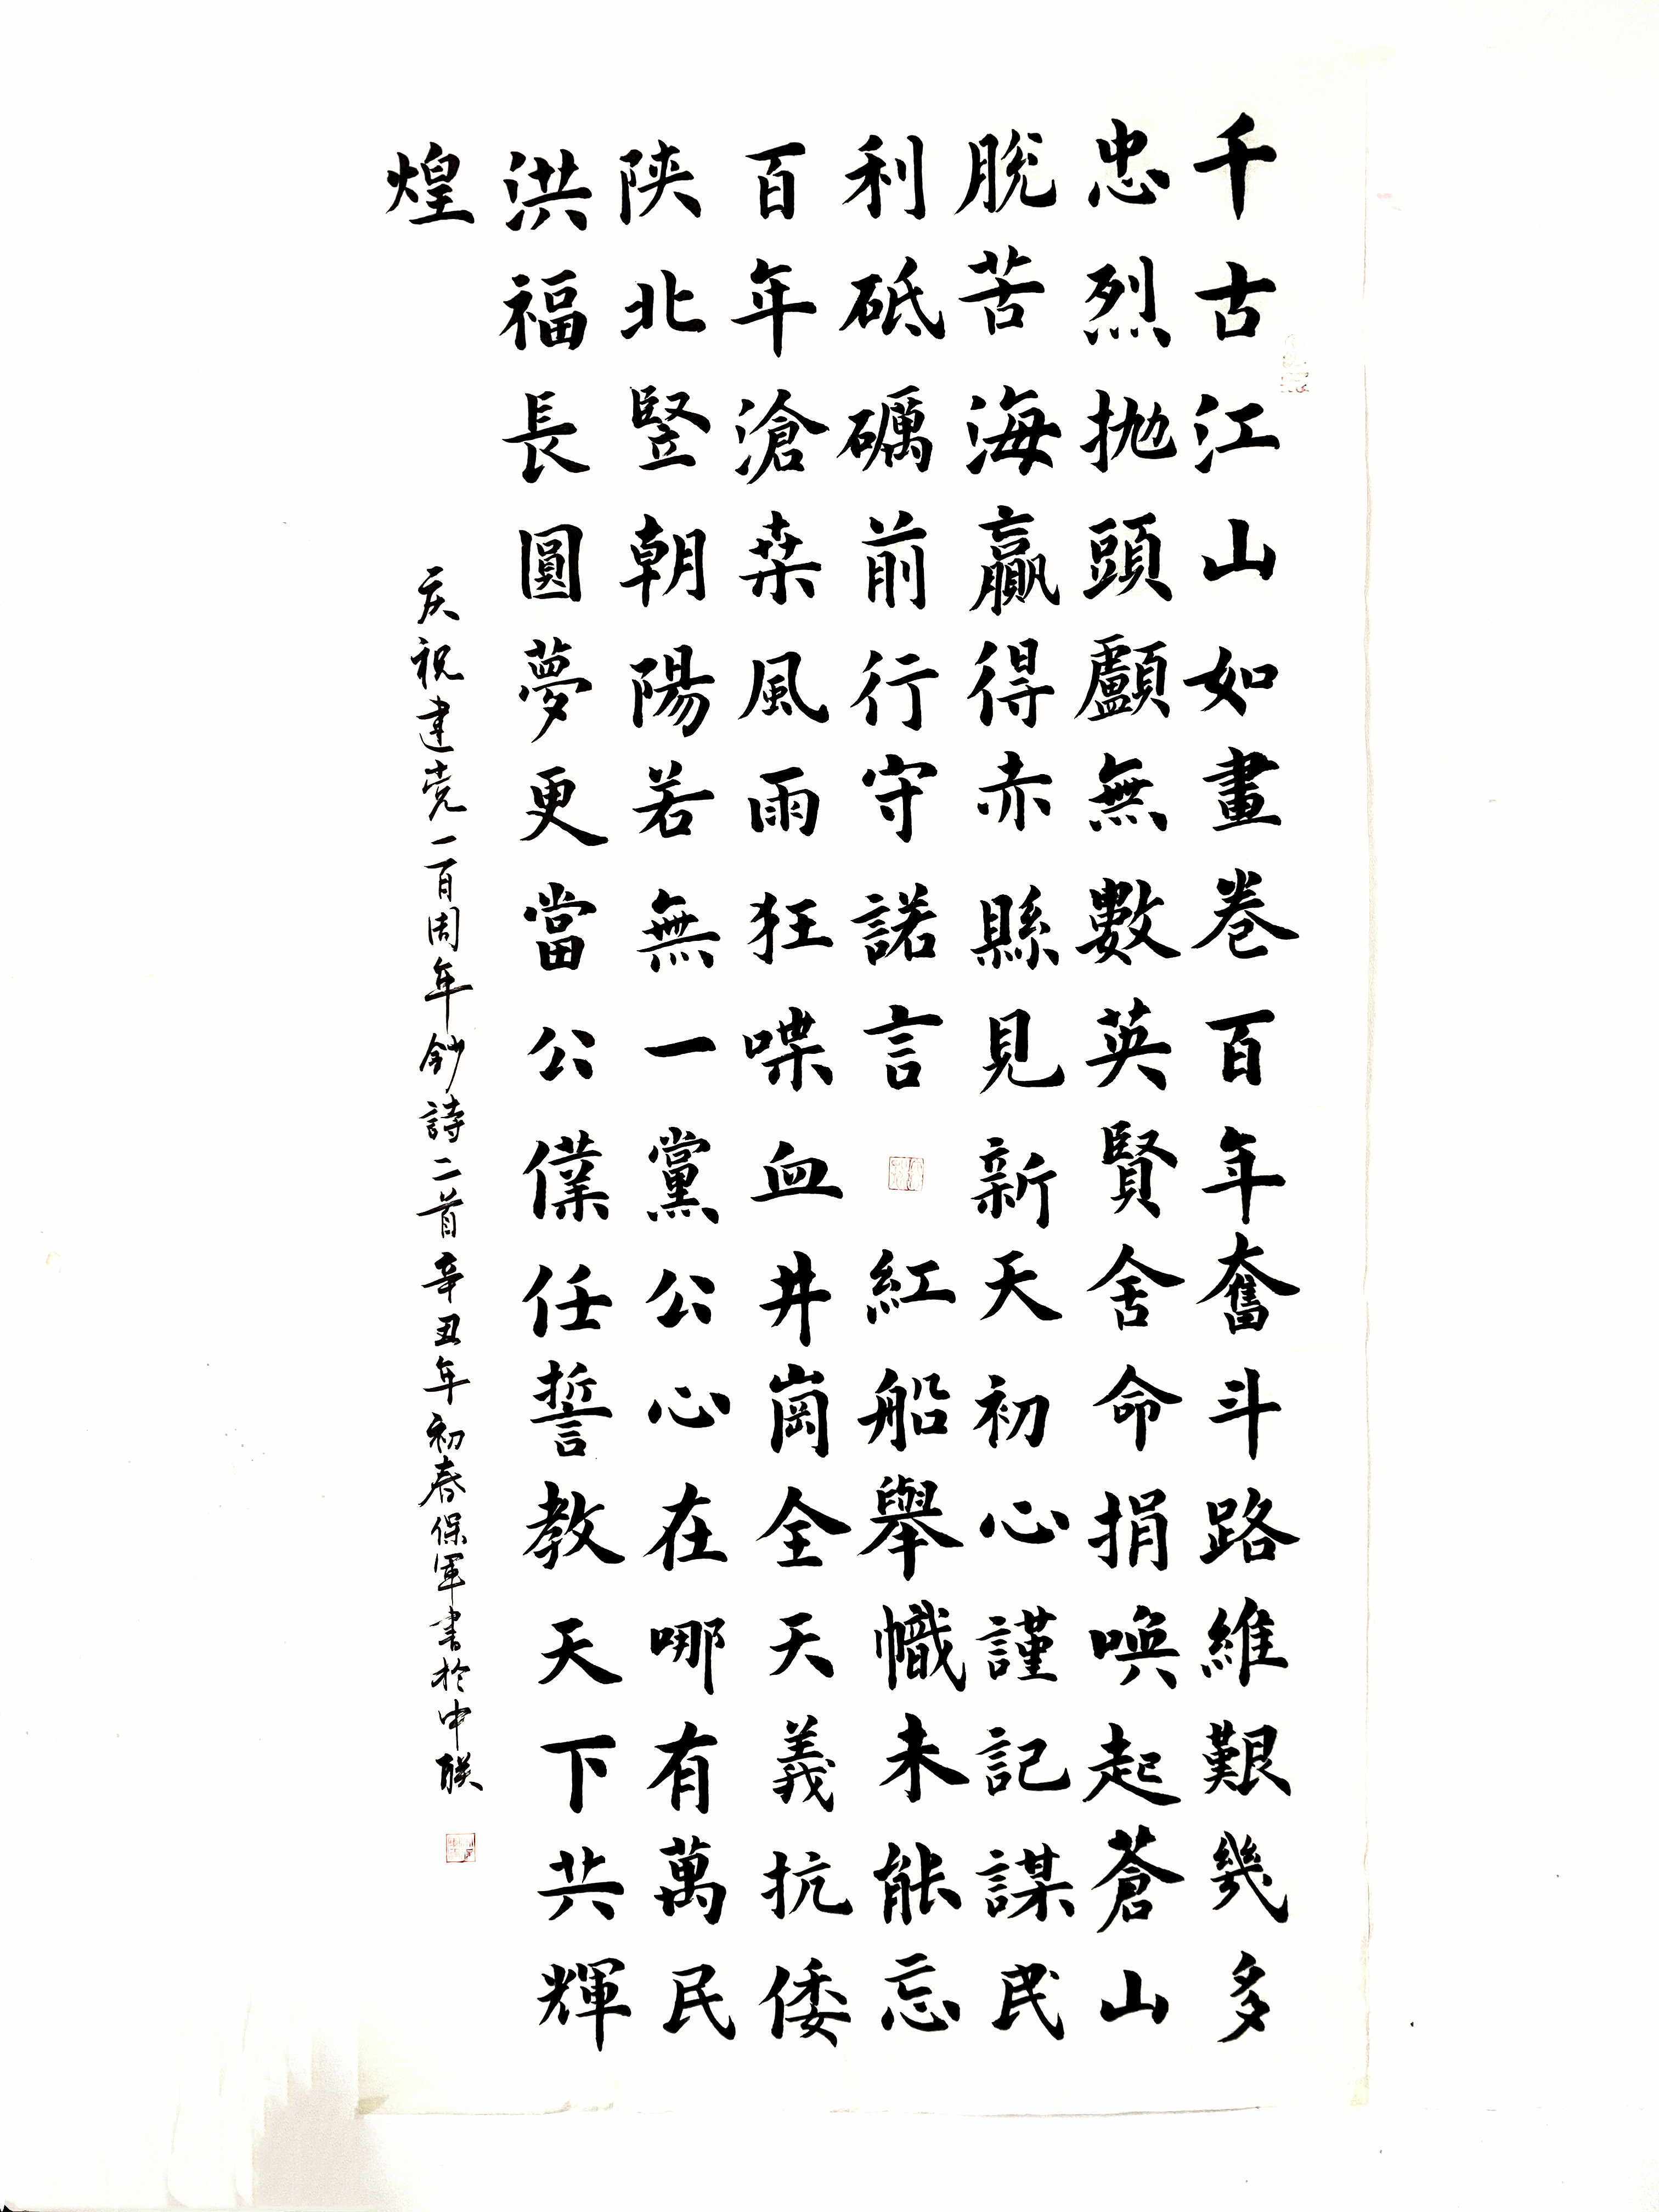 千古江山如畫卷百年奮斗路維艱幾多
忠烈抛頭顱無數英賢舍命捐喚起蒼山
脫苦海贏得赤縣見新天初心謹記謀民
利砥礪前行守諾言 紅船舉幟未能忘
百年滄桒風雨狂喋血井崗全天義抗倭
陝北豎朝陽若無一黨公心在哪有萬民
洪福長圓夢更當公僕任誓教天下共輝
煌
庆祝建党一百周年鈔詩二首辛丑年初春保軍書於中联